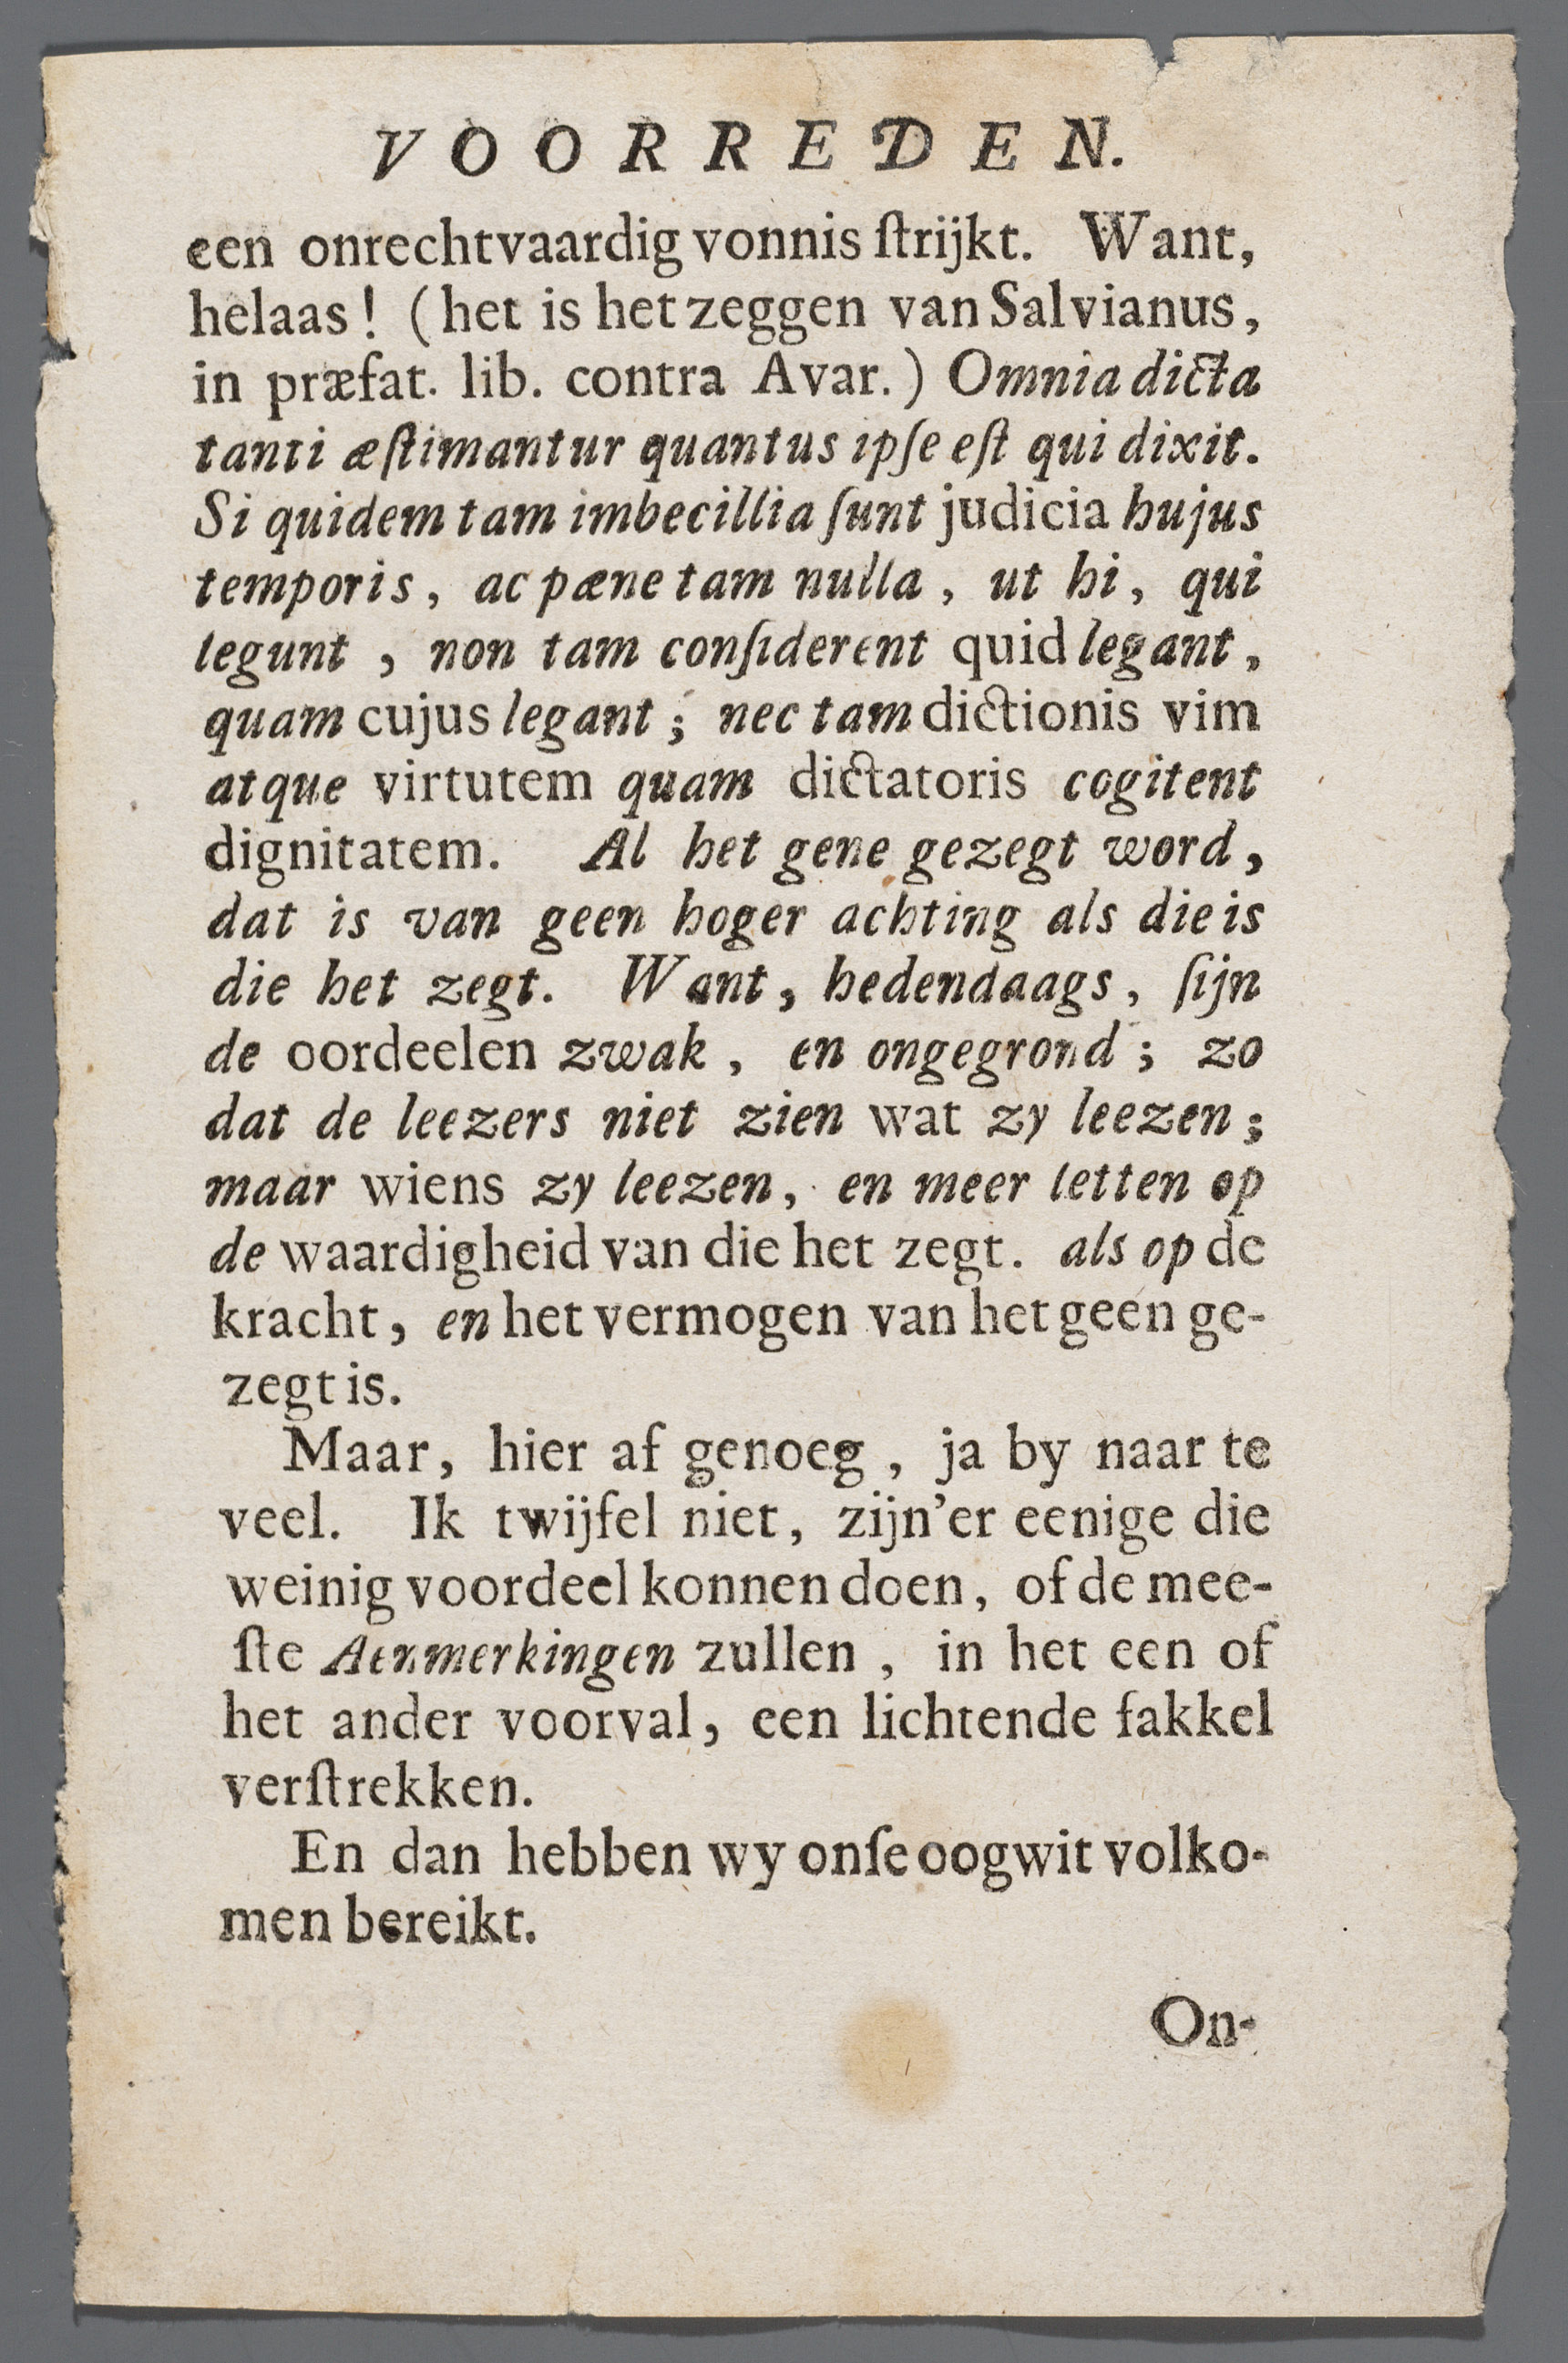 VOORREDEN.
een onrechtvaardig vonnis ſtrijkt. Want,
helaas! (het is het zeggen van Salvianus,
in præfat. lib. contra Avar.) Omnia dicta
tanti æſtimantur quantus ipſe eſt qui dixit.
Si quidem tam imbecillia ſunt judicia hujus
temporis, ac pæne tam nulla, ut hi, qui
legunt, non tam conſiderent quid legant,
quam cujus legant; nec tam dictionis vim
atque virtutem quam dictatoris cogitent
dignitatem. Al het gene gezegt word,
dat is van geen hoger achting als die is
die het zegt. Want, hedendaags, ſijn
de oordeelen zwak, en ongegrond; zo
dat de leezers niet zien wat zy leezen;
maar wiens zy leezen, en meer letten op
de waardigheid van die het zegt. als op de
kracht, en het vermogen van het geen ge-
zegt is.
Maar, hier af genoeg, ja by naar te
veel. Ik twijfel niet, zijn'er eenige die
weinig voordeel konnen doen, of de mee-
ſte Aenmerkingen zullen, in het een of
het ander voorval, een lichtende fakkel
verſtrekken.
En dan hebben wy onſe oogwit volko-
men bereikt.
On-